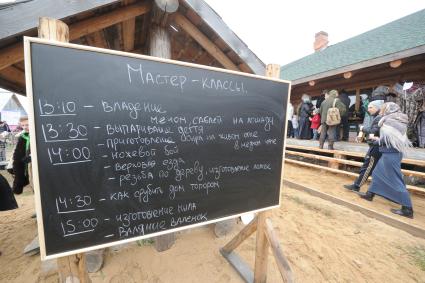 Мастер-классы.
13:10 - владение
мечом, саблей на лошади
13:30 - выпаривание дёгтя
14:00 - приготовление борща на живом огне
- ножевой бой в медном
- верховая езда
- резьба по дереву, изготовление
14:30 - как срубить дом топором
15:00 - изготовление
- валяние валенок